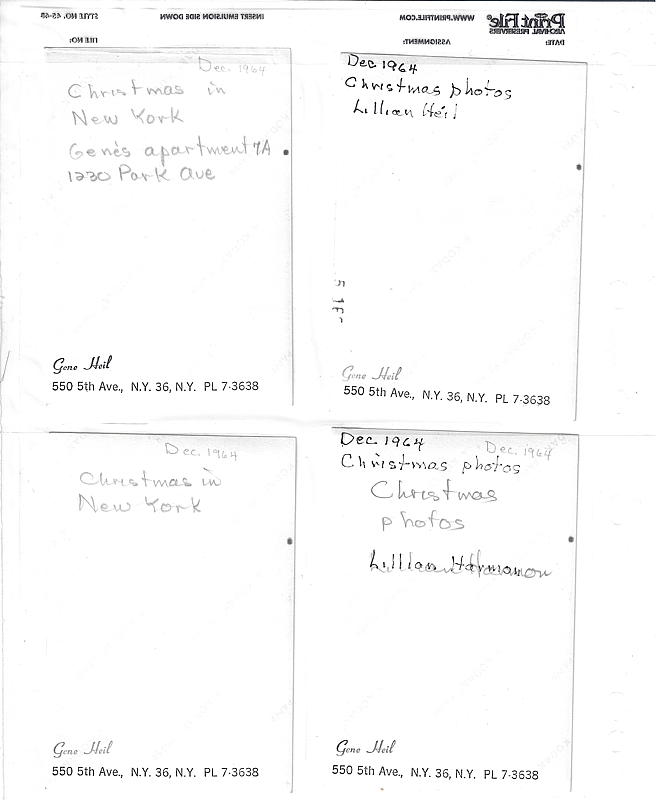 STYLE NO. 45-4B
INSERT EMULSION SIDE DOWN
WWW.PRINTFILE.COM
Print File®
ARCHIVAL PRESERVERS
FILE NO:
ASSIGNMENT:
DATE:
Dec. 1964
Christmas in
New York
Gene's apartment 7A
1230 Park Ave
Gene Heil
550 5th Ave., N.Y. 36, N.Y. PL 7-3638
Dec 1964
Christmas photos
Lillian Heil
Gene Heil
550 5th Ave., N.Y. 36, N.Y. PL 7-3638
Dec. 1964
Christmas in
New York
Gene Heil
550 5th Ave., N.Y. 36, N.Y. PL 7-3638
Dec. 1964 Dec. 1964
Christmas photos
Christmas
photos
Lillian
Gene Heil
550 5th Ave., N.Y. 36, N.Y. PL 7-3638